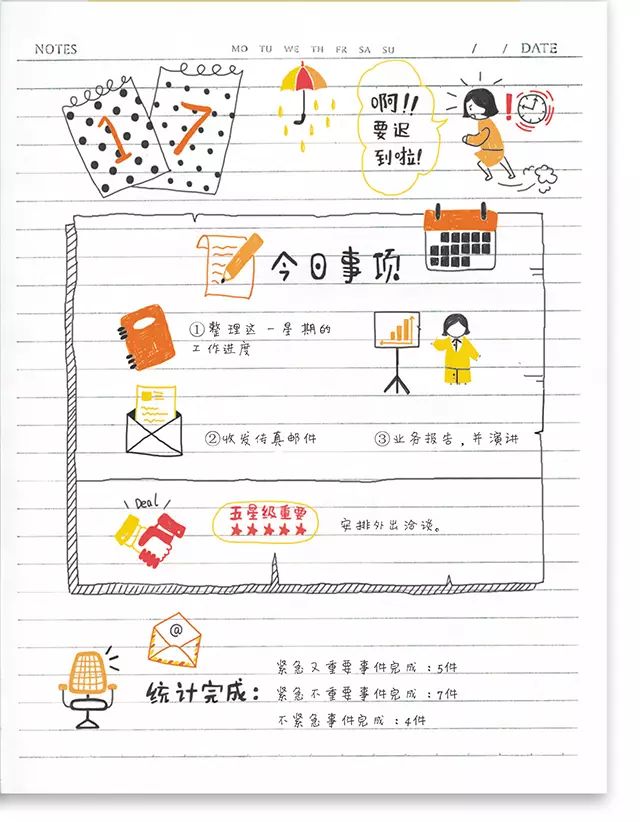 NOTES MO TU WE TH FR SA SU / / DATE
17
啊!!
要迟
到啦!
今日事项
①整理这一星期的
工作进度
②收发传真邮件
③业务报告,并演讲
Deal
五星级重要
安排外出洽谈。
@
统计完成:
紧急又重要事件完成:5件
紧急不重要事件完成:7件
不紧急事件完成:4件